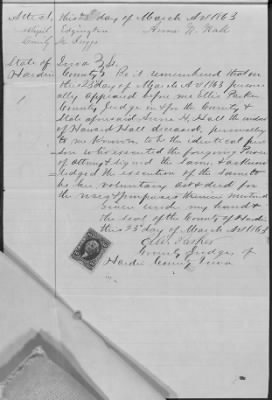 Attest. this 25 day of March A.D 1863
Abijah Edgington Anna W. Hall
County
State of Iowa } SS.
Hardin County } Be it remembered that on
this 25 day of March A.D 1863 person-
ally appeared before me Parker
County Judge in & for the County &
State aforesaid Anna W. Hall the widow
of Howard Hall deceased, personally
to me known to be the identical per-
son who executed the foregoing Power
of attorney & signed the same & acknow-
ledged the execution of the same to
be her voluntary act & deed for
the uses & purposes therein mentioned
Given under my hand &
the seal of the County of Hardin
this 25 day of March A.D 1863
Parker
County Judge of
Hardin County Iowa